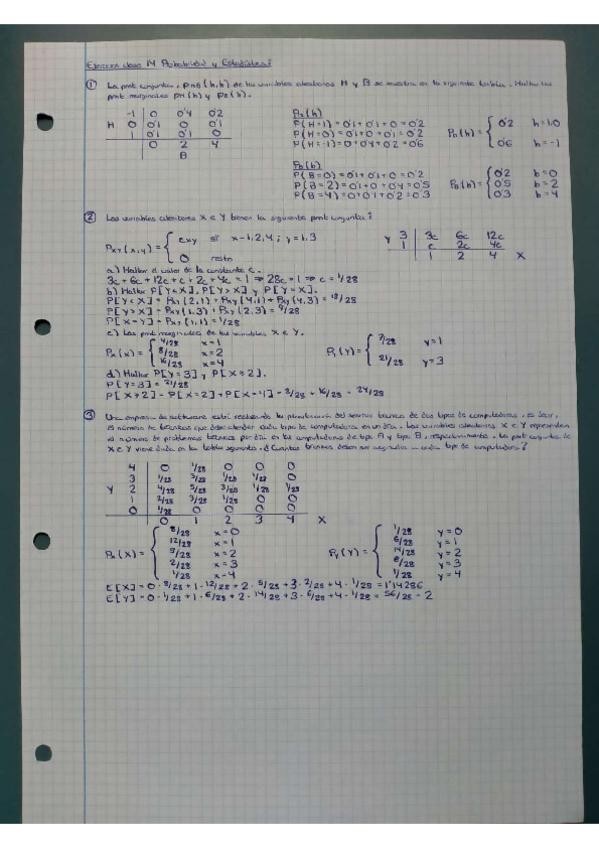 Ejercicios clase 14 Probabilidad y Estadística:
① La pmf conjunta, PH,B (h,b) de las variables aleatorias H y B se muestra en la siguiente tabla. Hallar las
pmf marginales PH(h) y PB(b).
-1 0 0'4 0'2
H 0 0'1 0 0'1
1 0'1 0'1 0
0 2 4
B
PH(h)
P(H=1)=0'1+0'1+0=0'2
P(H=0)=0'1+0+0'1=0'2
P(H=-1)=0+0'4+0'2=0'6
PH(h)= { 0'2 h=1,0
0'6 h=-1
PB(b)
P(B=0)=0'1+0'1+0=0'2
P(B=2)=0'1+0+0'4=0'5
P(B=4)=0+0'1+0'2=0'3
PB(b)= { 0'2 b=0
0'5 b=2
0'3 b=4
② Las variables aleatorias X e Y tienen la siguiente pmf conjunta:
PX,Y(x,y)= { cxy si x=1,2,4; y=1,3
0 resto
Y 3 3c 6c 12c
1 c 2c 4c
1 2 4 X
a) Hallar el valor de la constante c.
3c+6c+12c+c+2c+4c=1 → 28c=1 → c=1/28
b) Hallar P[Y<X], P[Y>X] y P[Y=X].
P[Y<X]=PX,Y(2,1)+PX,Y(4,1)+PX,Y(4,3)=18/28
P[Y>X]=PX,Y(1,3)+PX,Y(2,3)=9/28
P[X=Y]=PX,Y(1,1)=1/28
c) Las pmf marginales de las variables X e Y.
PX(x)= { 4/28 x=1
8/28 x=2
16/28 x=4
PY(Y)= { 7/28 y=1
21/28 y=3
d) Hallar P[Y=3] y P[X≥2].
P[Y=3]=21/28
P[X≥2]=P[X=2]+P[X=4]=8/28+16/28=24/28
③ Una empresa de software está realizando la planificación del servicio técnico de dos tipos de computadoras, es decir,
el número de técnicos que debe atender cada tipo de computadora en un día. Las variables aleatorias X e Y representan
el número de problemas técnicos por día en las computadoras de tipo A y tipo B, respectivamente. La pmf conjunta de
X e Y viene dada en la tabla siguiente. ¿Cuántos técnicos deben ser asignados a cada tipo de computadora?
4 0 1/28 0 0 0
3 1/28 3/28 1/28 1/28
Y 2 4/28 5/28 3/28 1/28 1/28
1 2/28 3/28 1/28 0 0
0 1/28 0 0 0 0
0 1 2 3 4 X
PX(X)= { 8/28 x=0
12/28 x=1
5/28 x=2
2/28 x=3
1/28 x=4
PY(Y)= { 1/28 y=0
6/28 y=1
14/28 y=2
6/28 y=3
1/28 y=4
E[X]=0·8/28+1·12/28+2·5/28+3·2/28+4·1/28=1'14286
E[Y]=0·1/28+1·6/28+2·14/28+3·6/28+4·1/28=56/28=2